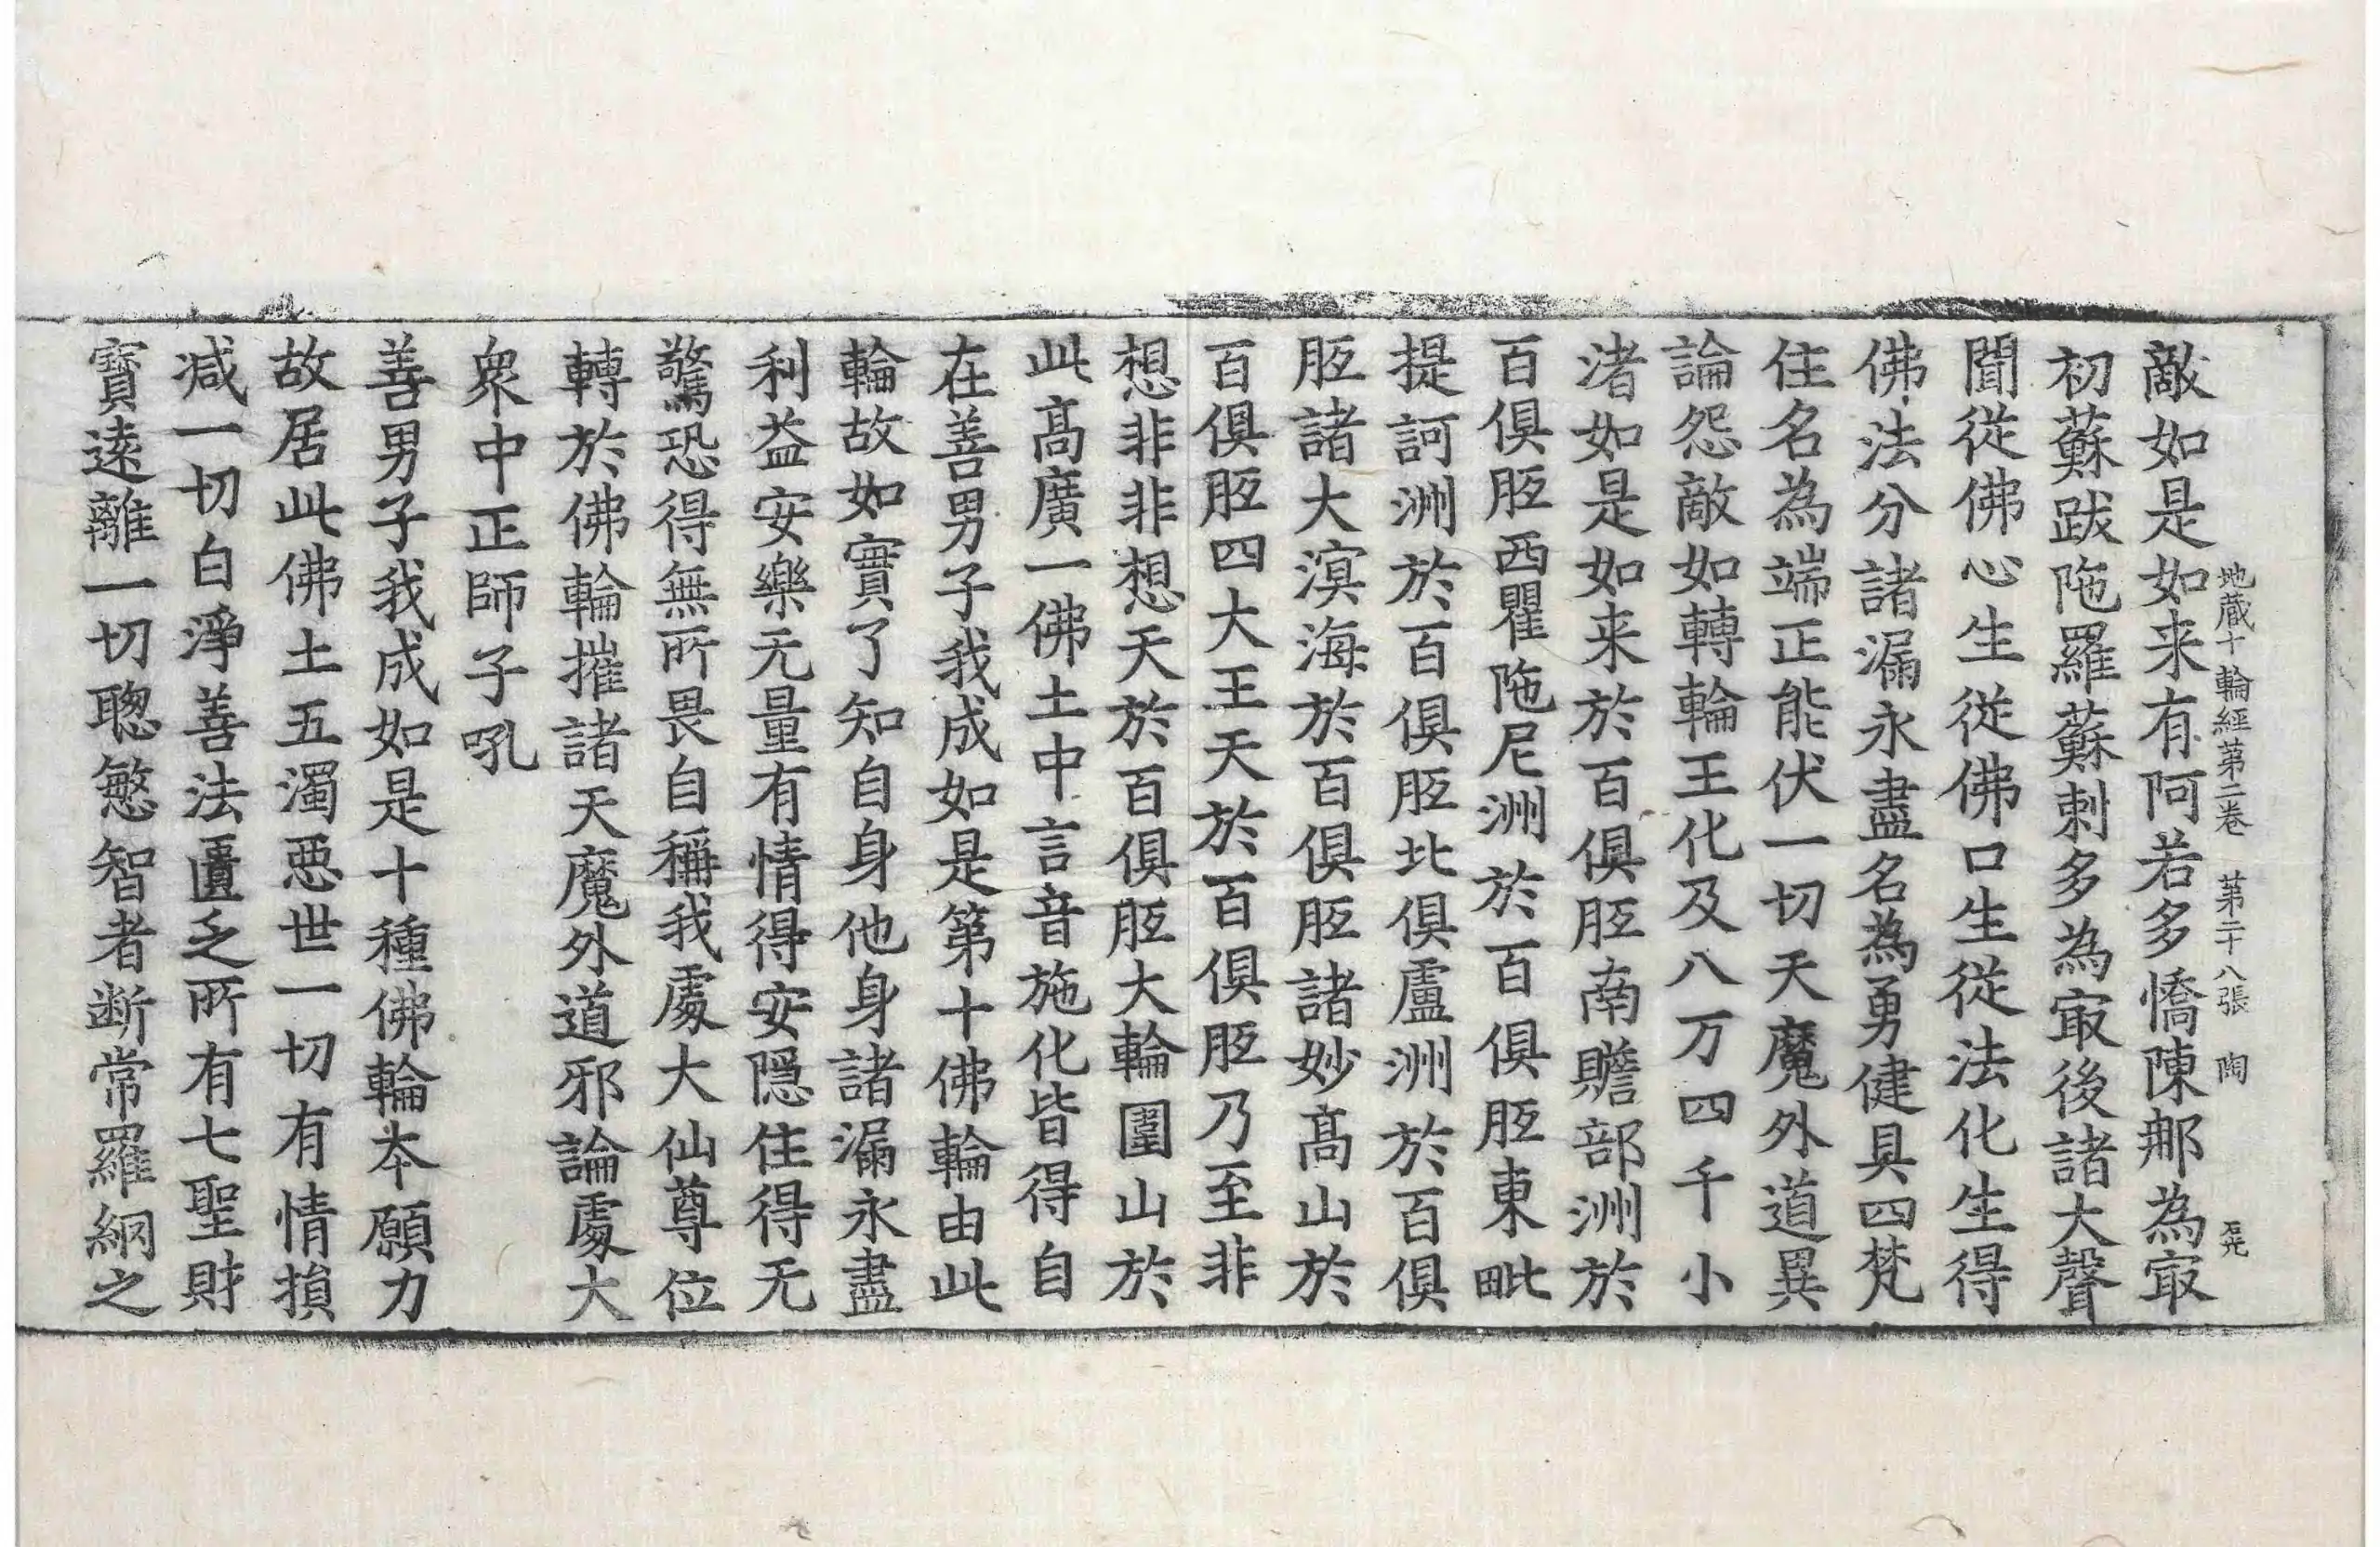 敵如是如来有阿若多憍陳那為㝡
地蔵十輪經第二卷　第二十八張　陶
初蘇跋陁羅蘇剌多為㝡後諸大聲
聞從佛心生從佛口生從法化生得
佛法分諸漏永盡名為勇健具四梵
住名為端正能伏一切天魔外道異
論怨敵如轉輪王化及八万四千小
渚如是如来於百俱胝南贍部洲於
百俱胝西瞿陁尼洲於百俱胝東毗
提訶洲於百俱胝北俱盧洲於百俱
胝諸大溟海於百俱胝諸妙髙山於
百俱胝四大王天於百俱胝乃至非
想非非想天於百俱胝大輪圍山於
此髙廣一佛土中言音施化皆得自
在善男子我成如是第十佛輪由此
輪故如實了知自身他身諸漏永盡
利益安樂无量有情得安隱住得无
驚恐得無所畏自稱我處大仙尊位
轉於佛輪摧諸天魔外道邪論處大
衆中正師子吼
善男子我成如是十種佛輪夲願力
故居此佛土五濁惡世一切有情損
减一切白淨善法匱乏所有七聖財
寶逺離一切聦慜智者断常羅網之